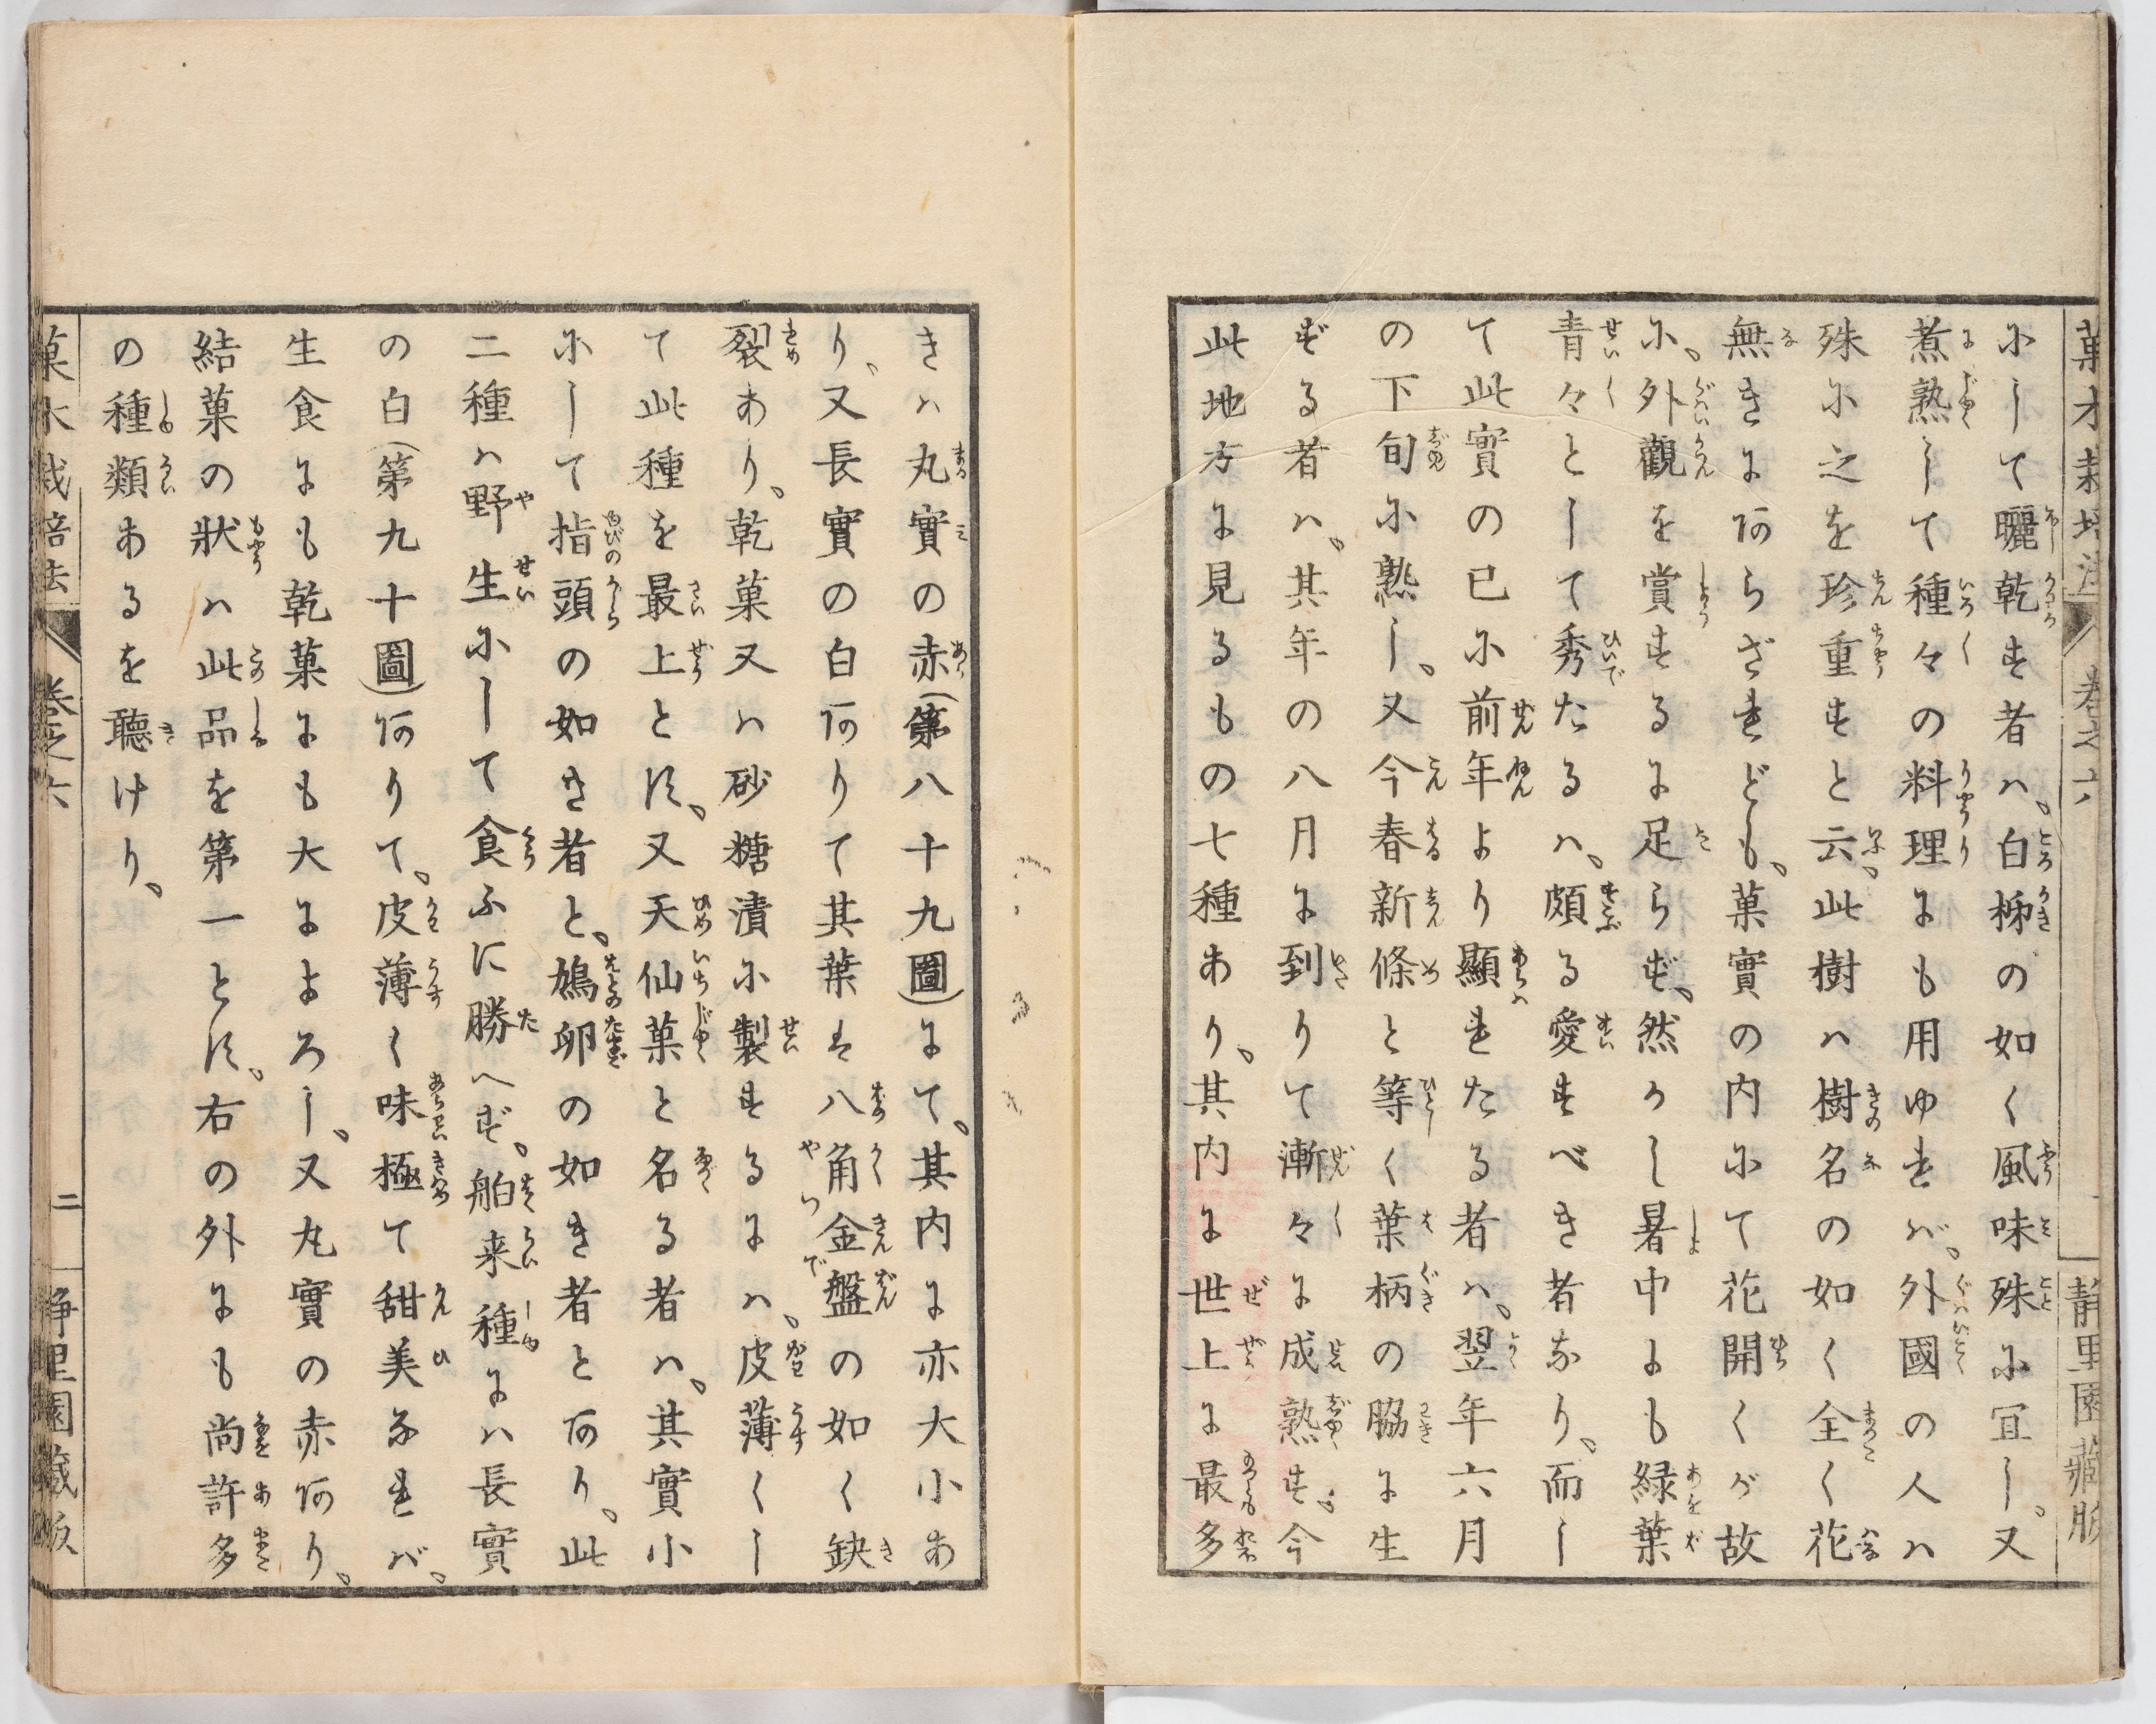 菓木栽培法 巻之六 靜里園藏版
にして曬乾す者ハ、白柹の如く風味殊に宜し、又
煮熟して種々の料理にも用ゆれバ、外國の人ハ
殊に之を珍重すと云、此樹ハ樹名の如く全く花
無きにあらざれども、菓實の内にて花開くが故
に、外觀を賞するに足らず、然かし暑中にも緑葉
青々として秀たるハ、頗る愛すべき者なり、而し
て此實の已に前年より顯れたる者ハ、翌年六月
の下旬に熟し、又今春新條と等く葉柄の脇に生
ずる者ハ、其年の八月に到りて漸々に成熟す、今
此地方に見るもの七種あり、其内に世上に最多
きハ丸實の赤(第八十九圖)にて、其内に亦大小あ
り、又長實の白ありて其葉は八角金盤の如く缺
裂あり、乾菓又ハ砂糖漬に製するにハ、皮薄くし
て此種を最上とす、又天仙菓と名る者ハ、其實小
にして指頭の如き者と、鳩卵の如き者とあり、此
二種ハ野生にして食ふに勝へず、舶来種にハ長實
の白(第九十圖)ありて、皮薄く味極て甜美なれバ、
生食にも乾菓にも大によろし、又丸實の赤あり、
結菓の狀ハ此品を第一とす、右の外にも尚許多
の種類あるを聽けり、
菓木栽培法 巻之六 二 靜里園藏版